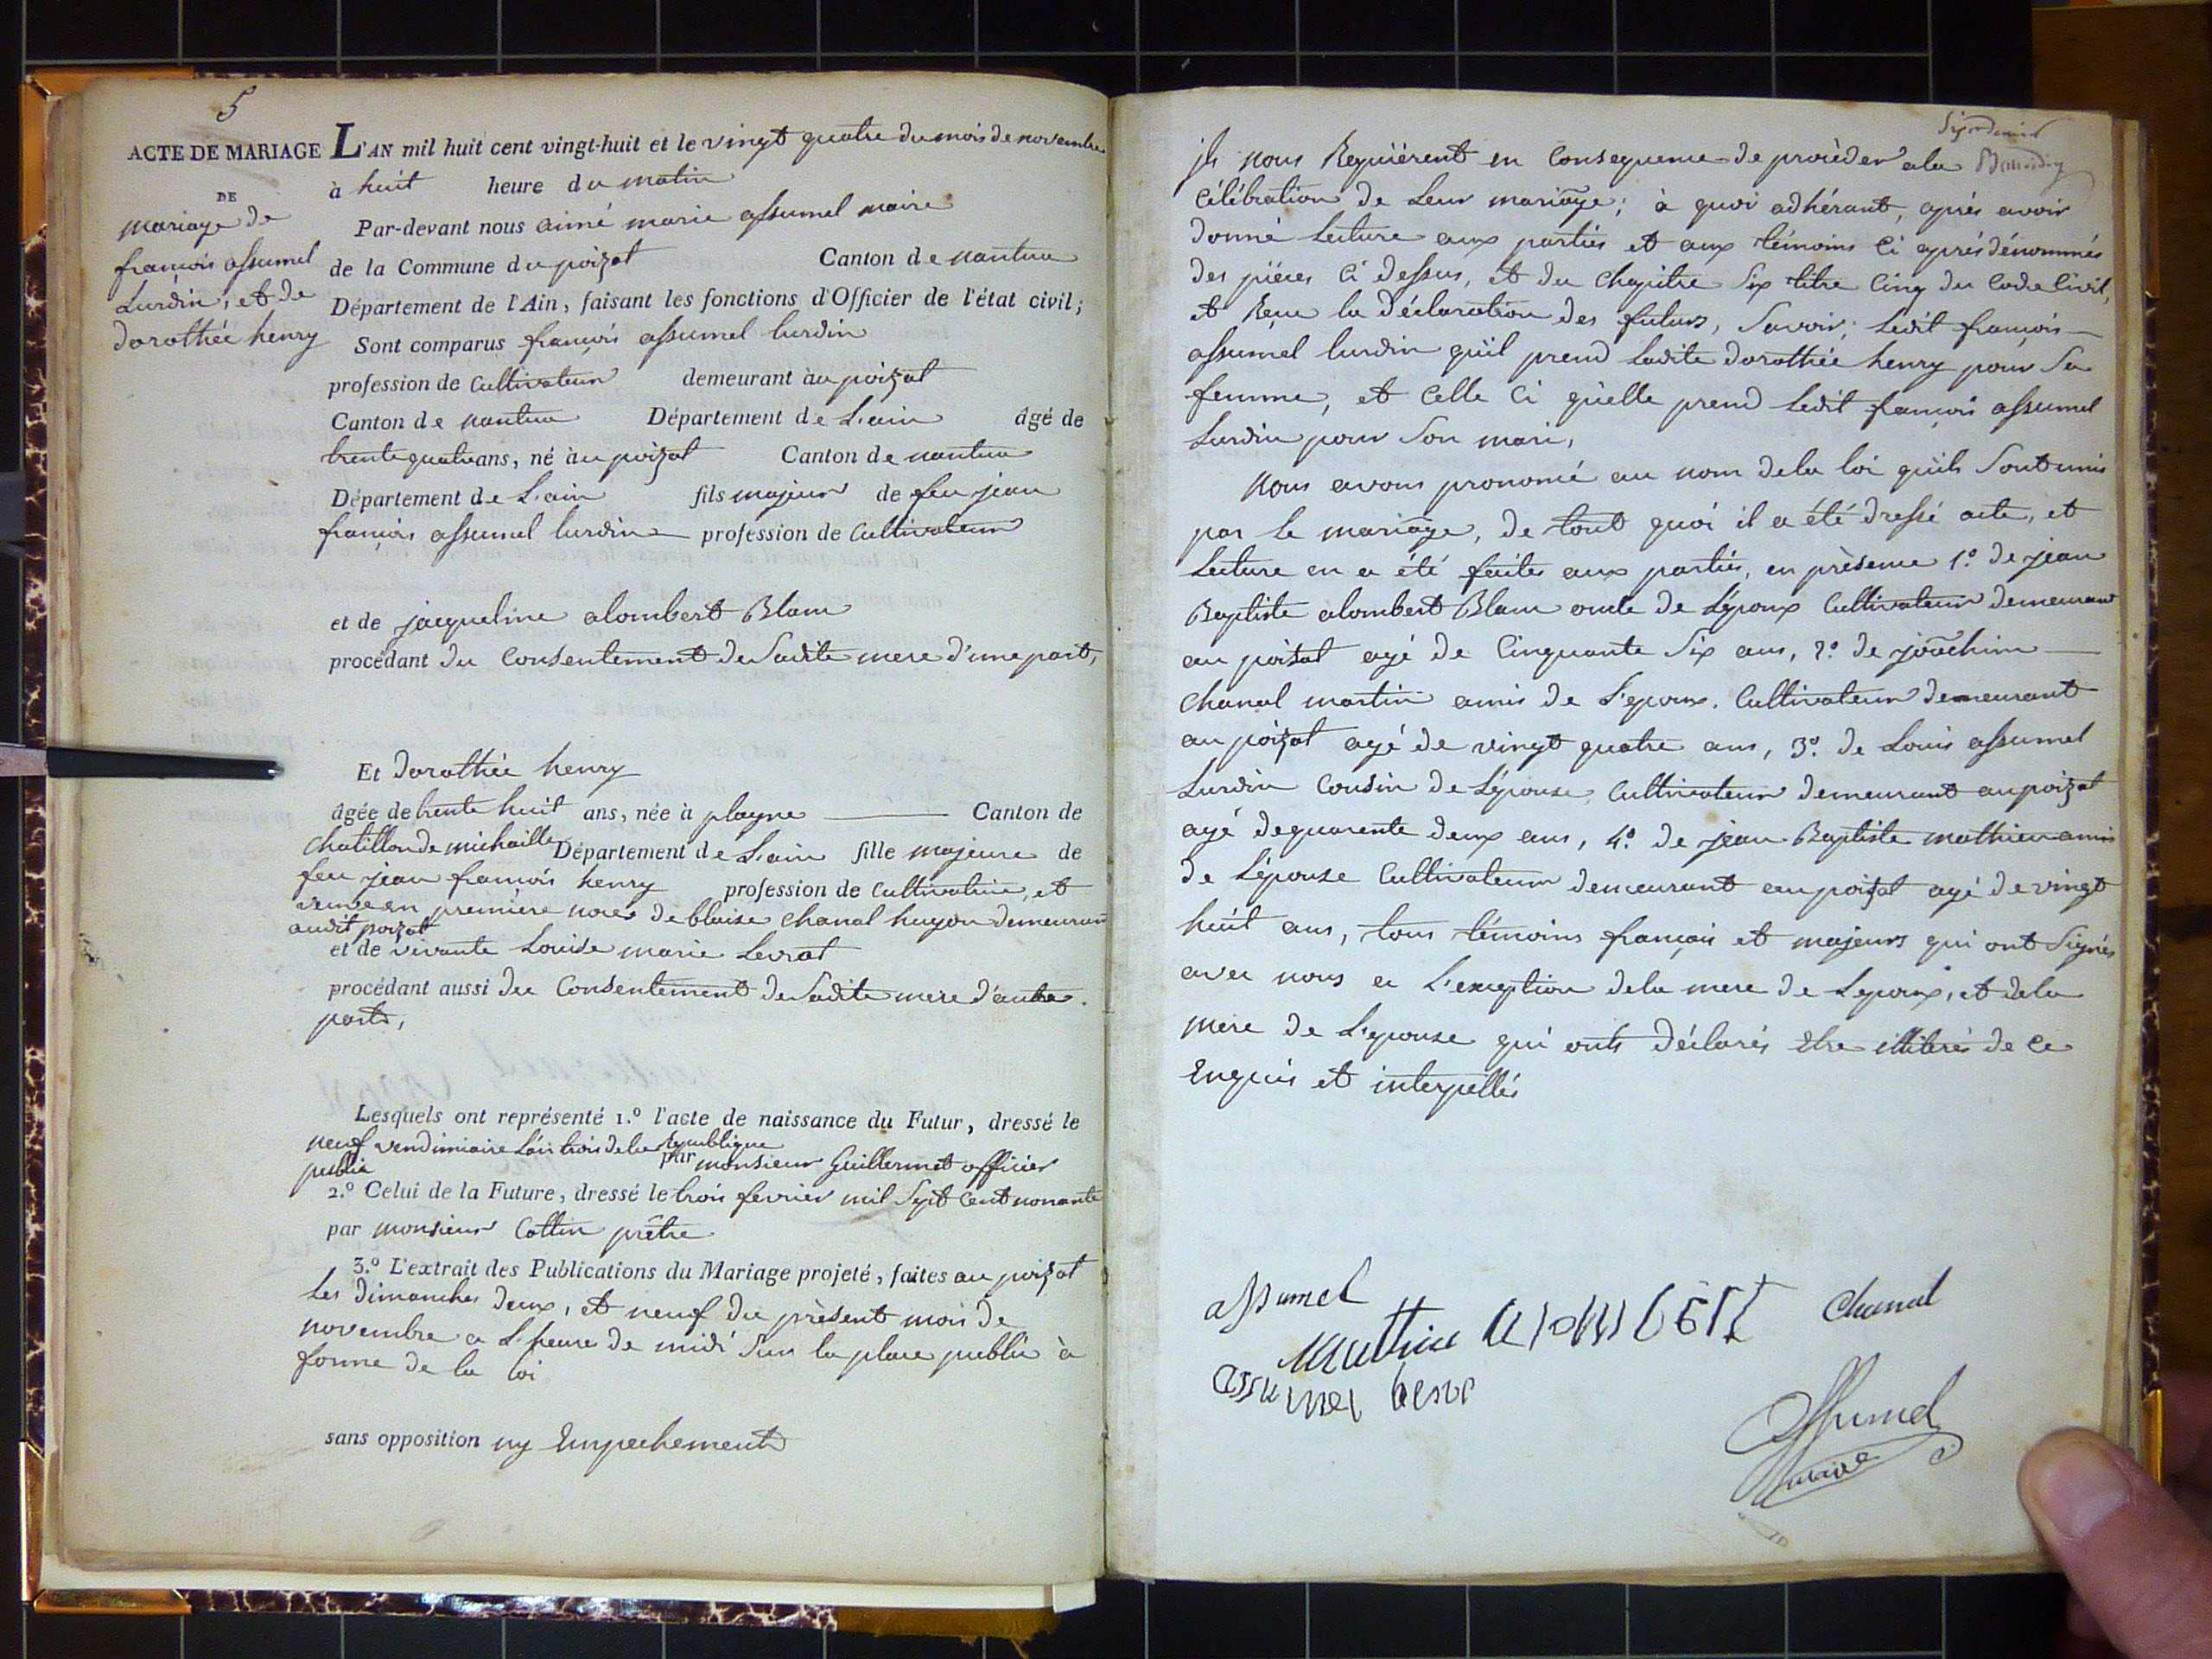 5
ACTE DE MARIAGE
DE
mariage de
françois assumel
Lurdin, et de
dorothée henry
L'AN mil huit cent vingt-huit et le vingt quatre du mois de novembre
à huit heure du matin
Par-devant nous aimé marie assumel maire
de la Commune du poizat Canton de nantua
Département de l'Ain, faisant les fonctions d'Officier de l'état civil;
Sont comparus françois assumel lurdin
profession de Cultivateur demeurant àu poizat
Canton de nantua Département de L'ain âgé de
trente quatre ans, né àu poizat Canton de nantua
Département de L'ain fils majeur de feu jean
françois assumel lurdin profession de Cultivateur
et de jacqueline alombert Blanc
procédant du Consentement de Sadite mere d'une part,
Et dorothée henry
âgée de trente huit ans, née à plagne Canton de
chatillon de michaille Département de L'ain fille majeure de
feu jean françois henry profession de Cultivatrice, et
veuve en premiere noces de blaise chanal hugon demeurant
audit poizat
et de vivante Louise marie Levrat
procédant aussi du Consentement de Sadite mere d'autre
part,
Lesquels ont représenté 1.º l'acte de naissance du Futur, dressé le
neuf vendimiaire L'an trois de la republique
public par monsieur Guillermet officier
2.º Celui de la Future, dressé le trois fevrier mil Sept Cent nonante
par monsieur Cottin prêtre
3.º L'extrait des Publications du Mariage projeté, faites au poizat
Les dimanches deux, et neuf du présent mois de
novembre a L'heure de midi Sur la place public à
forme de la loi
sans opposition ny Empechement
ils nous Requièrent en Consequence de procèder a la
Célébration de Leur mariage; à quoi adhérant, après avoir
donné Lecture aux parties et aux témoins Ci après dénommés
des pièces Ci dessus, et du Chapitre Six titre Cinq du Code Civil,
et Reçu la déclaration des futurs, Savoir; Ledit françois
assumel lurdin qu'il prend Ladite dorothée henry pour Sa
femme, et Celle Ci qu'elle prend Ledit françois assumel
Lurdin pour Son mari,
Nous avons prononcé au nom de la loi qu'ils Sont unis
par le mariage, de tout quoi il a été dressé acte, et
Lecture en a été faites aux parties, en présence 1º. de jean
Baptiste alombert Blanc oncle de L'époux Cultivateur demeurant
au poizat agé de Cinquante Six ans, 2º. de joachim
chanal martin amis de L'epoux. Cultivateur demeurant
au poizat agé de vingt quatre ans, 3º. de Louis assumel
Lurdin Cousin de L'épouse Cultivateur demeurant au poizat
agé de quarente deux ans, 4º. de jean Baptiste mathieu amis
de L'épouse Cultivateur demeurant au poizat agé de vingt
huit ans, tous témoins français et majeurs qui ont Signés
avec nous a L'exception de la mere de Lepoux, et de la
mere de L'epouse qui onts déclarés Etre illiterés de ce
Enquis et interpellés
assumel
Mathieu alombert Chanal
assumel
assumel
maire